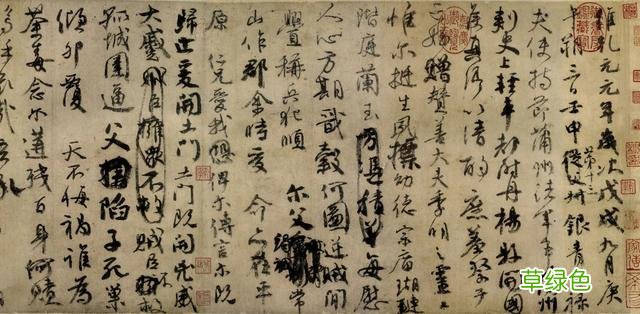 維乾元元年歲次戊戌九月庚
午朔三日壬申第十三從父叔銀青光祿
夫使持節蒲州諸軍事蒲州
刺史上輕車都尉丹楊縣開國
侯真卿以清酌庶羞祭于
亡姪贈贊善大夫季明之靈曰
惟爾挺生夙標幼德宗廟瑚璉
階庭蘭玉方憑積善每慰
人心方期戩穀何圖逆賊閒
釁稱兵犯順爾父竭誠常
山作郡余時受命亦在平
原仁兄愛我恐俾爾傳言爾既
歸止爰開土門土門既開凶威
大蹙賊臣擁眾不救賊臣不救
孤城圍逼父陷子死巢
傾卵覆天不悔禍誰為
荼毒念爾遘殘百身何贖
嗚乎哀哉吾承
草绿色